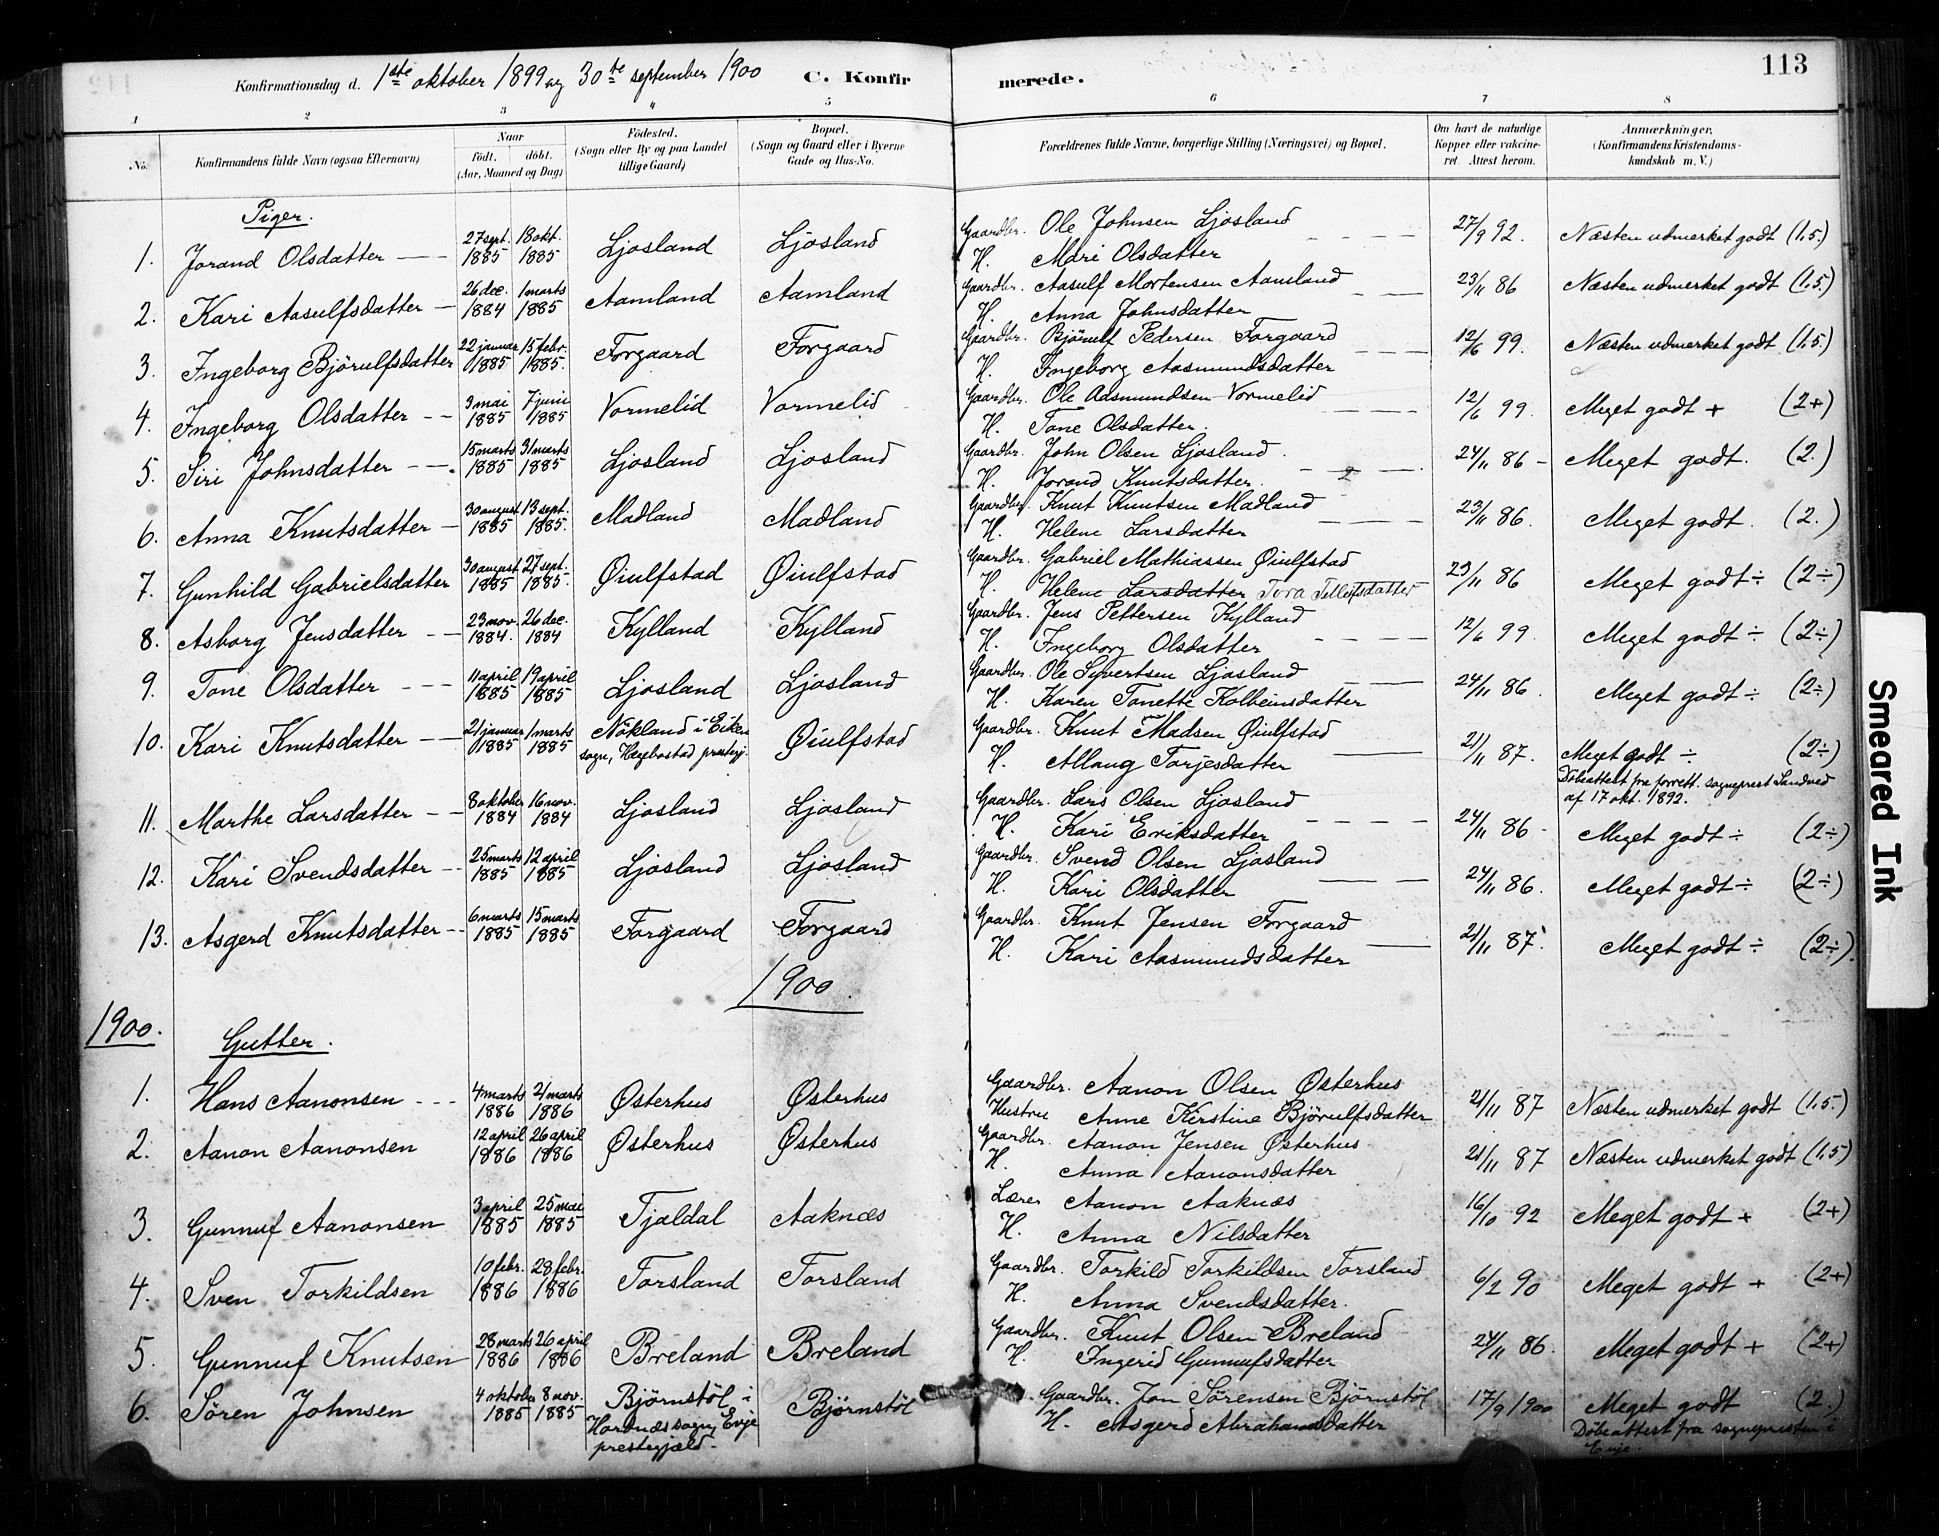 113
Konfirmationsdag d. 1ste oktober 1899 og 30te september 1900 C. Konfirmerede.
1 2 3 4 5 6 7 8
No. Konfirmandens fulde Navn (ogsaa Efternavn) Naar født. døbt. (Aar, Maaned og Dag) Fødested. (Sogn eller By og paa Landet tillige Gaard) Bopæl. (Sogn og Gaard eller i Byerne Gade og Hus-No. Forældrenes fulde Navne, borgerlige Stilling (Næringsvei) og Bopæl. Om havt de naturlige Kopper eller vakcineret. Attest herom. Anmærkninger. (Konfirmandens Kristendomskundskab m. V.)
Piger.
1. Jorand Olsdatter 27 sept. 1885 18 okt. 1885 Ljosland Ljosland Gaardbr. Ole Johnsen Ljosland H. Mari Olsdatter 27/9 92. Næsten udmerket godt (1,5.)
2. Kari Aasulfsdatter 26 dec. 1884 1 marts 1885 Aamland Aamland Gaardbr. Aasulf Mortensen Aamland H. Anna Johnsdatter 23/11 86 Næsten udmerket godt (1,5.)
3. Ingeborg Bjørulfsdatter 22 januar 1885 15 febr. 1885. Forgaard Forgaard Gaardbr. Bjørulf Pedersen Forgaard H. Ingeborg Aasmundsdatter 12/6 99. Næsten udmerket godt (1,5.)
4. Ingeborg Olsdatter 3 mai 1885 7 juni 1885 Vormelid Vormelid Gaardbr. Ole Aasmundsen Vormelid H. Tone Olsdatter. 12/6 99. Meget godt + (2+)
5. Siri Johnsdatter 15 marts 1885 31 marts 1885 Ljosland Ljosland Gaardbr. John Olsen Ljosland. H. Jorand Knutsdatter. 24/11 86 Meget godt. (2.)
6. Anna Knutsdatter 30 august 1885 13 sept. 1885. Madland Madland Gaardbr. Knut Knutsen Madland H. Helene Larsdatter 23/11 86. Meget godt. (2.)
7. Gunhild Gabrielsdatter 30 august 1885 27 sept. 1885. Øiulfstad Øiulfstad Gaardbr. Gabriel Mathiassen Øiulfstad H. Helene Larsdatter Tora Tellefsdatter 23/11 86 Meget godt ÷ (2÷)
8. Asborg Jensdatter 23 nov. 1884. 26 dec. 1884 Kylland Kylland Gaardbr. Jens Pettersen Kylland H. Ingeborg Olsdatter 12/6 99. Meget godt ÷ (2÷)
9. Tone Olsdatter 11 april 1885 19 april 1885 Ljosland Ljosland Gaardbr. Ole Syvertsen Ljosland H. Karen Tonette Kolbeinsdatter 24/11 86. Meget godt ÷ (2÷)
10. Kari Knutsdatter 21 januar 1885 1 marts 1885 Nökland i Eiken sogn, Hægebostad prestegj. Øiulfstad Gaardbr. Knut Madsen Øiulfstad H. Allaug Torjesdatter 21/11 87. Meget godt ÷ (2÷) Döbeattest fra forrett. sogneprest Sandved af 17 okt. 1892.
11. Marthe Larsdatter 8 oktober 1884 16 nov. 1884 Ljosland Ljosland Gaardbr. Lars Olsen Ljosland H. Kari Eriksdatter 24/11 86 Meget godt ÷ (2÷)
12. Kari Svendsdatter 25 marts 1885 12 april 1885 Ljosland Ljosland Gaardbr. Svend Olsen Ljosland H. Kari Olsdatter 24/11 86. Meget godt ÷ (2÷)
13. Asgerd Knutsdatter 6 marts 1885 15 marts 1885 Forgaard Forgaard Gaardbr. Knut Jensen Forgaard H. Kari Aasmundsdatter 21/11 87. Meget godt ÷ (2÷).
1900.
1900.
Gutter.
1. Hans Aanonsen 4 marts 1886 21 marts 1886 Østerhus Østerhus Gaardbr. Aanon Olsen Østerhus Hustru Anne Kirstine Bjørulfsdatter 21/11 87 Næsten udmerket godt (1,5.)
2. Aanon Aanonsen 12 april 1886 26 april 1886 Østerhus Østerhus Gaardbr. Aanon Jensen Østerhus H. Anna Aanonsdatter 21/11 87 Næsten udmerket godt (1,5)
3. Gunnuf Aanonsen 3 april 1885 25 mai 1885 Tjaldal Aaknæs Lærer Aanon Aaknæs H. Anna Nilsdatter 16/10 92 Meget godt + (2+)
4. Sven Torkildsen 10 febr. 1886 28 febr. 1886 Forsland Forsland Gaardbr. Torkild Torkildsen Forsland H. Anna Svendsdatter. 6/2 90 Meget godt + (2+)
5. Gunnuf Knutsen 28 marts 1886 26 april 1886 Breland Breland Gaardbr. Knut Olsen Breland H. Ingerid Gunnufsdatter 24/11 86. Meget godt + (2+)
6. Sören Johnsen 4 oktober 1885 8 nov. 1885 Bjørnstöl i Hordnæs sogn, Evje prestegjæld. Bjørnstöl Gaardbr. Jon Sörensen Bjørnstöl H. Asgerd Abrahamsdatter 17/9 1900 Meget godt (2.) Döbeattest fra sognepresten i Evje.
Smeared Ink